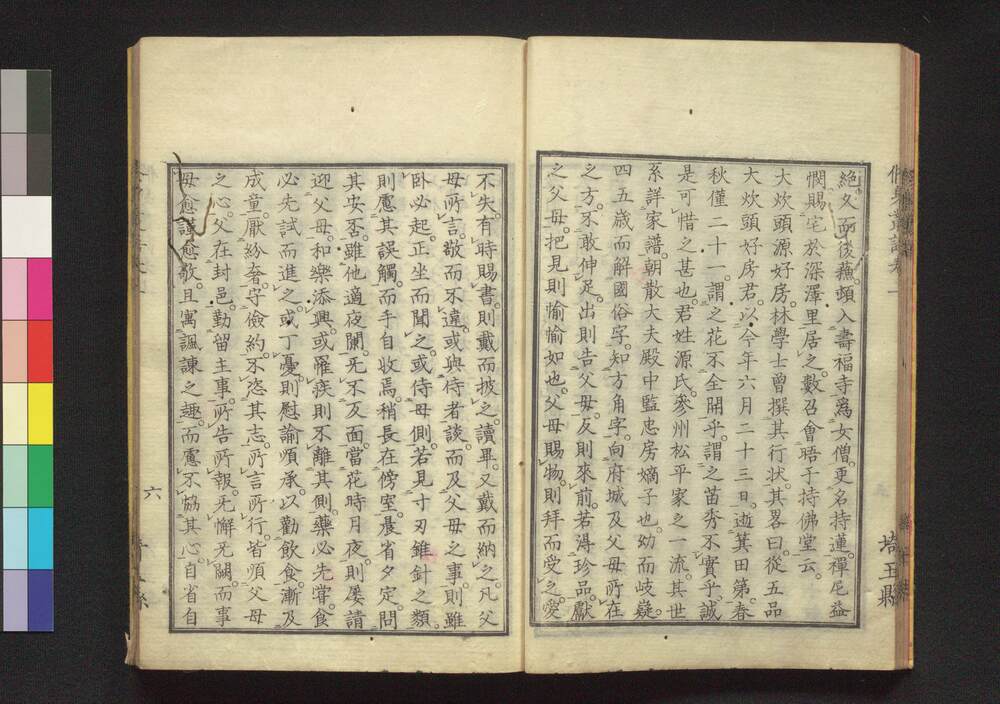 絶。久而後蘓。頓入壽福寺爲女僧。更名持蓮。禪尼益
憫賜宅於深澤里居之。數召會晤于持佛堂云。
大炊頭源好房。林學士曾撰其行状。其畧曰。從五品
大炊頭好房君。以今年六月二十三日。逝其田第。春
秋僅二十一。謂之花不全開乎。謂之苗秀不實乎。誠
是可惜之甚也。君姓源氏。參州松平家之一流。其世
系詳家譜。朝散大夫殿中監忠房嫡子也。幼而岐嶷。
四五歳而解國俗字。知方角字。向府城及父母所在
之方。不敢伸足。出則告父母。反則來前。若得珍品。獻
之父母。把見則愉愉如也。父母賜物。則拜而受之。愛
不失。有時賜書。則戴而披之。讀畢。又戴而納之。凡父
母所言。敬而不違。或與侍者談。而及父母之事。則雖
卧必起。正坐而聞之。或侍母側。若見寸刃錐針之類。
則慮其誤觸。而手自收焉。稍長在傍室。晨省夕定。問
其安否。雖他適夜闌。旡不反面。當花時月夜。則屡請
迎父母。和樂添興。或罹疾則不離其側。藥必先嘗。食
必先試而進之。或丁憂。則慰諭順承。以勸飲食。漸及
成童。厭紛奢。守儉約。不恣其志。所言所行。皆順父母
之心。父在封邑。勤留主事。所告所報。旡懈旡闕。而事
母愈謹愈敬。且寓諷諌之趣。而慮不恊其心。自省自
六